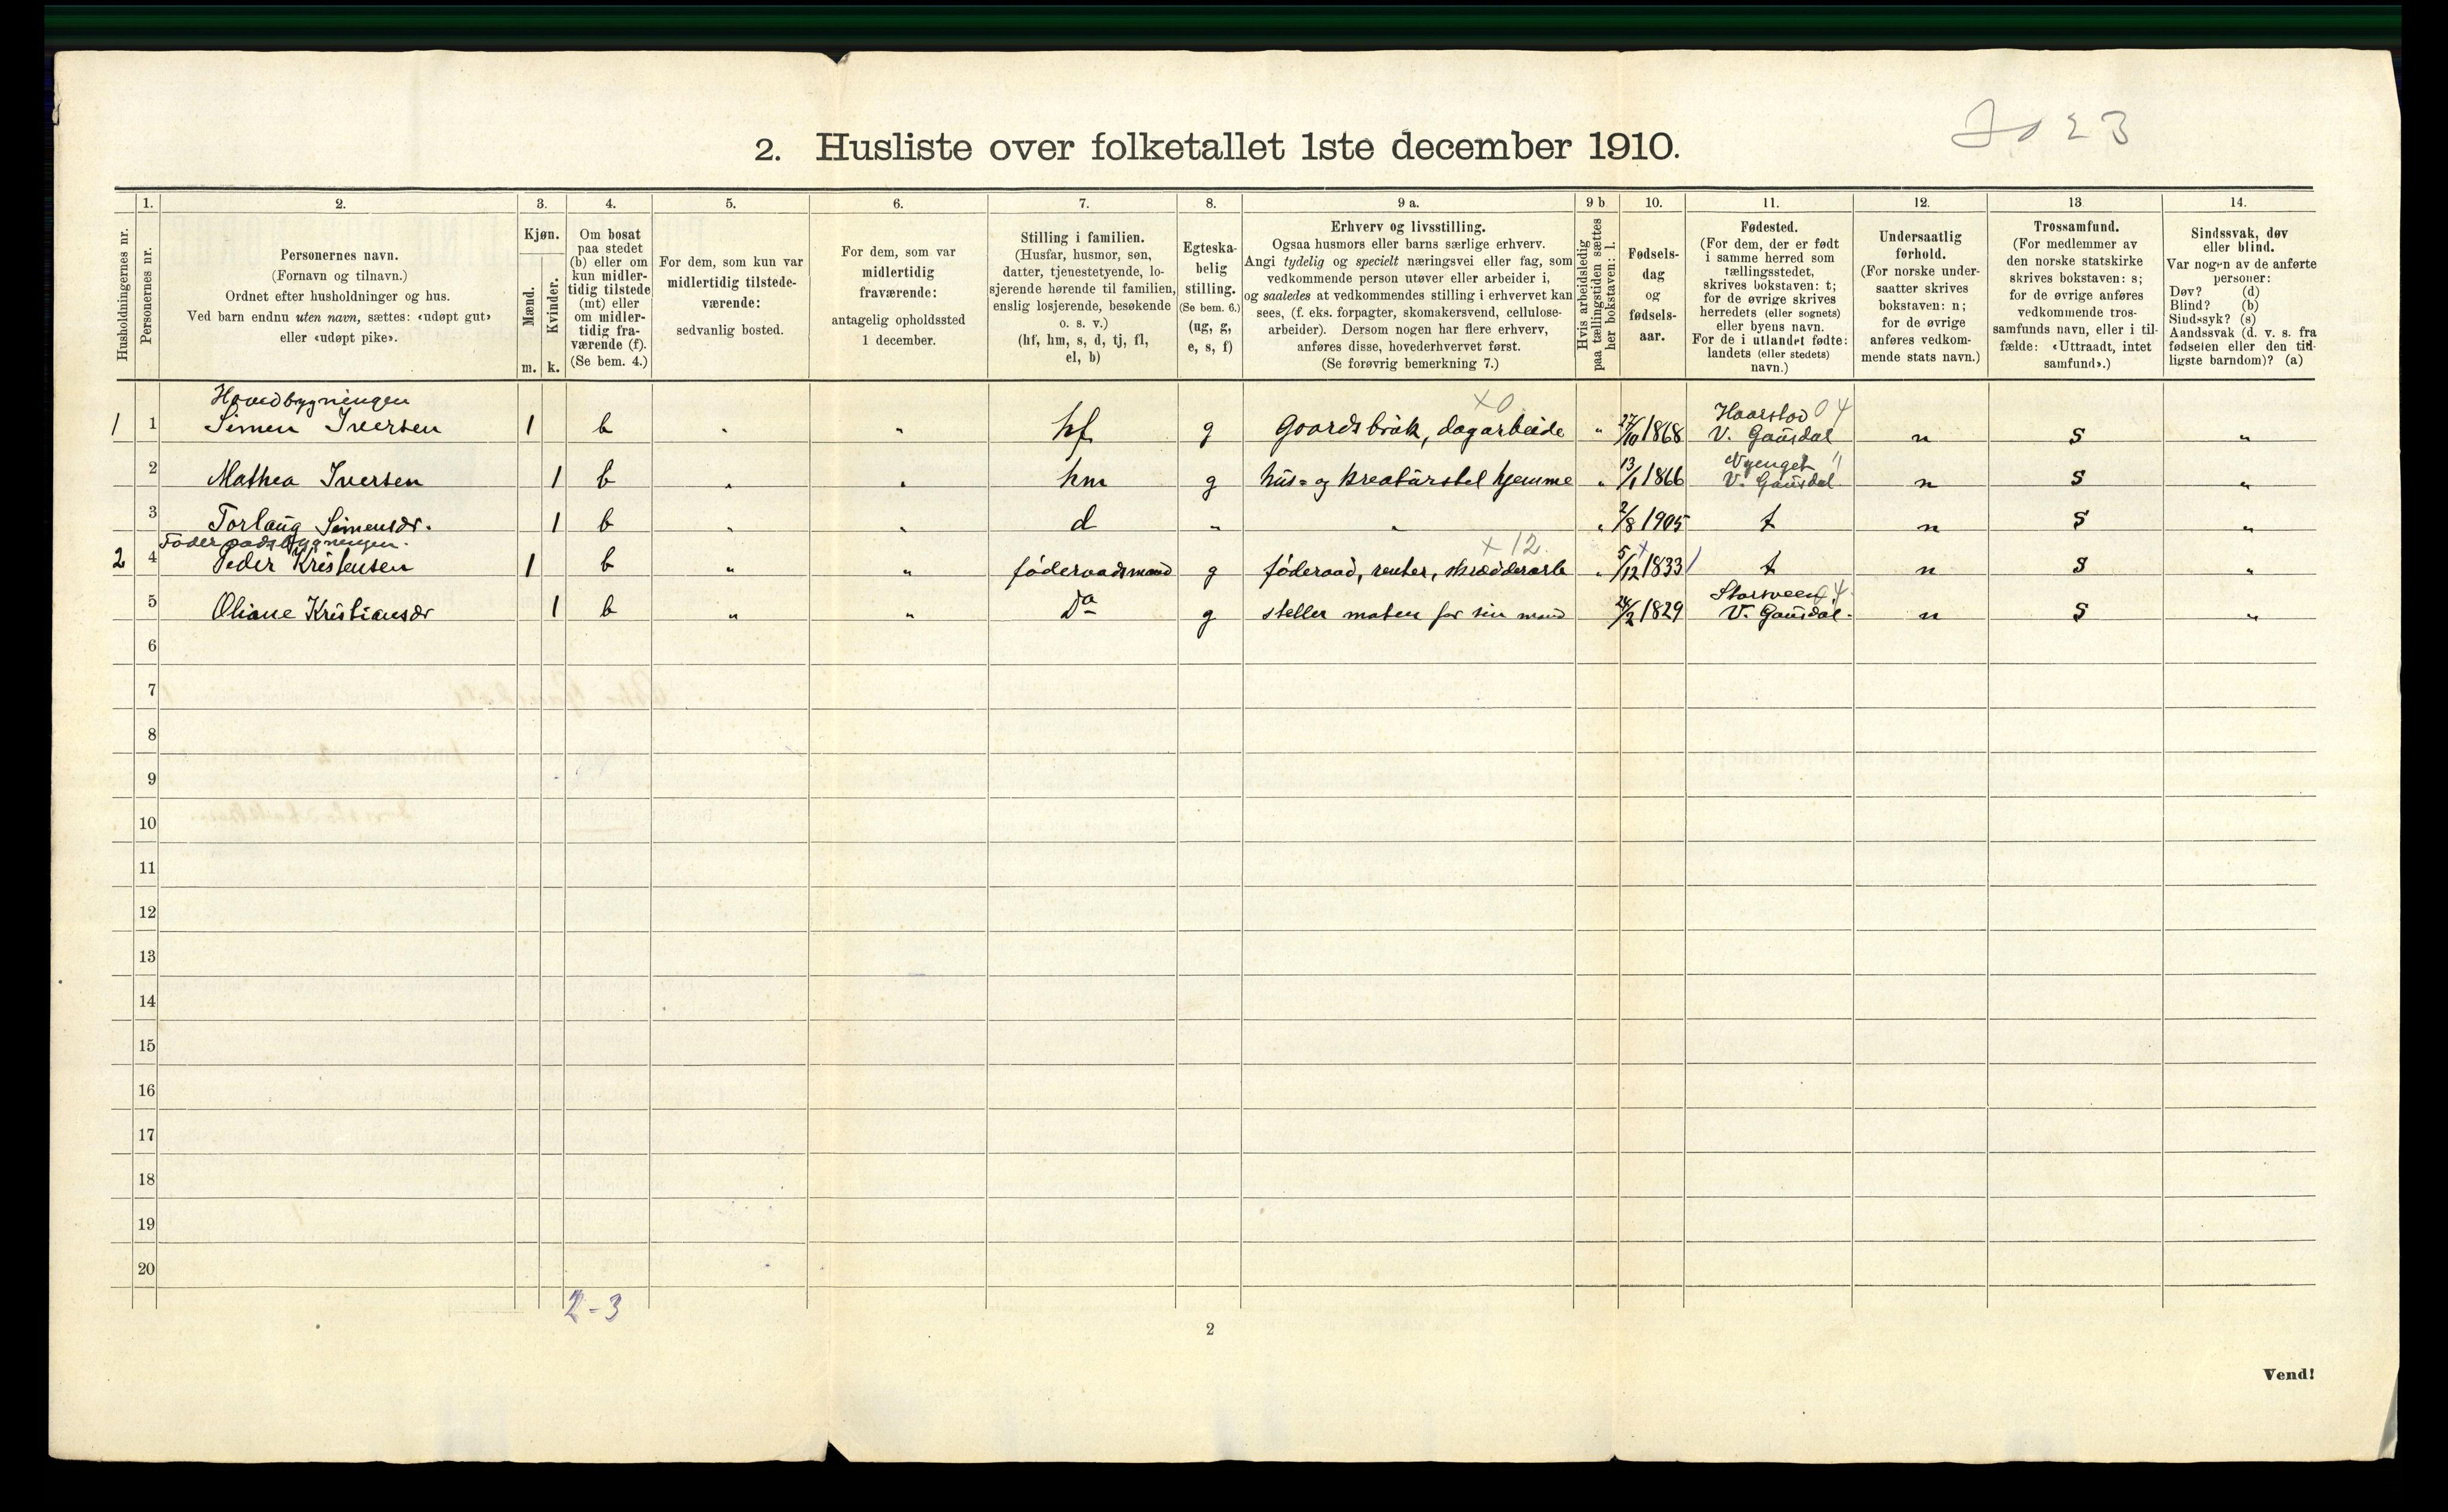 2. Husliste over folketallet 1ste december 1910.
1. 2. 3. 4. 5. 6. 7. 8. 9 a. 9 b 10. 11. 12. 13 14.
Husholdningernes nr.
Personernes nr.
Personernes navn.
(Fornavn og tilnavn.)
Ordnet efter husholdninger og hus.
Ved barn endnu uten navn, sættes: «udøpt gut»
eller «udøpt pike».
Kjøn.
Mænd.
Kvinder.
m. k.
Om bosat
paa stedet
(b) eller om
kun midler-
tidig tilstede
(mt) eller
om midler-
tidig fra-
værende (f).
(Se bem. 4.)
For dem, som kun var
midlertidig tilstede-
værende:
sedvanlig bosted.
For dem, som var
midlertidig
fraværende:
antagelig opholdssted
1 december.
Stilling i familien.
(Husfar, husmor, søn,
datter, tjenestetyende, lo-
sjerende hørende til familien,
enslig losjerende, besøkende
o. s. v.)
(hf, hm, s, d, tj, fl,
el, b)
Egteska-
belig
stilling.
(Se bem. 6.)
(ug, g,
e, s, f)
Erhverv og livsstilling.
Ogsaa husmors eller barns særlige erhverv.
Angi tydelig og specielt næringsvei eller fag, som
vedkommende person utøver eller arbeider i,
og saaledes at vedkommendes stilling i erhvervet kan
sees, (f. eks. forpagter, skomakersvend, cellulose-
arbeider). Dersom nogen har flere erhverv,
anføres disse, hovederhvervet først.
(Se forøvrig bemerkning 7.)
Hvis arbeidsledig
paa tællingstiden sættes
her bokstaven: l.
Fødsels-
dag
og
fødsels-
aar.
Fødested.
(For dem, der er født
i samme herred som
tællingsstedet,
skrives bokstaven: t;
for de øvrige skrives
herredets (eller sognets)
eller byens navn.
For de i utlandet fødte:
landets (eller stedets)
navn.)
Undersaatlig
forhold.
(For norske under-
saatter skrives
bokstaven: n;
for de øvrige
anføres vedkom-
mende stats navn.)
Trossamfund.
(For medlemmer av
den norske statskirke
skrives bokstaven: s;
for de øvrige anføres
vedkommende tros-
samfunds navn, eller i til-
fælde: «Uttraadt, intet
samfund».)
Sindssvak, døv
eller blind.
Var nogen av de anførte
personer:
Døv? (d)
Blind? (b)
Sindssyk? (s)
Aandssvak (d. v. s. fra
fødselen eller den tid-
ligste barndom)? (a)
Hovedbygningen
x0
Haarstad 04
1 1 Simen Iversen 1 b " " hf g Gaardsbruk, dagarbeide " 27/10 1868 V. Gausdal n s "
Nyenget "
2 Mathea Iversen 1 b " " hm g hus- og kreaturstel hjemme " 13/1 1866 V. Gausdal n s "
3 Torlaug Simensdr. 1 b " " d " " " 2/8 1905 t n s "
Föderaadsbygningen.
x 12
2 4 Peder Kristensen 1 b " " föderaadsmand g föderaad, renter, skrædderarb " 5/12 1833 t n s "
04
5 Oliane Kristiansdr 1 b " " Do g steller maten for sin mand 24/2 1829 V. Gausdal. n s "
6
7
8
9
10
11
12
13
14
15
16
17
18
19
20
2-3
2
Vend!